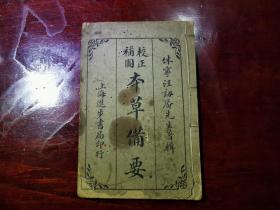 休寧汪訒菴先生著輯
校正
補圖
本草備要
上海進步書局印行